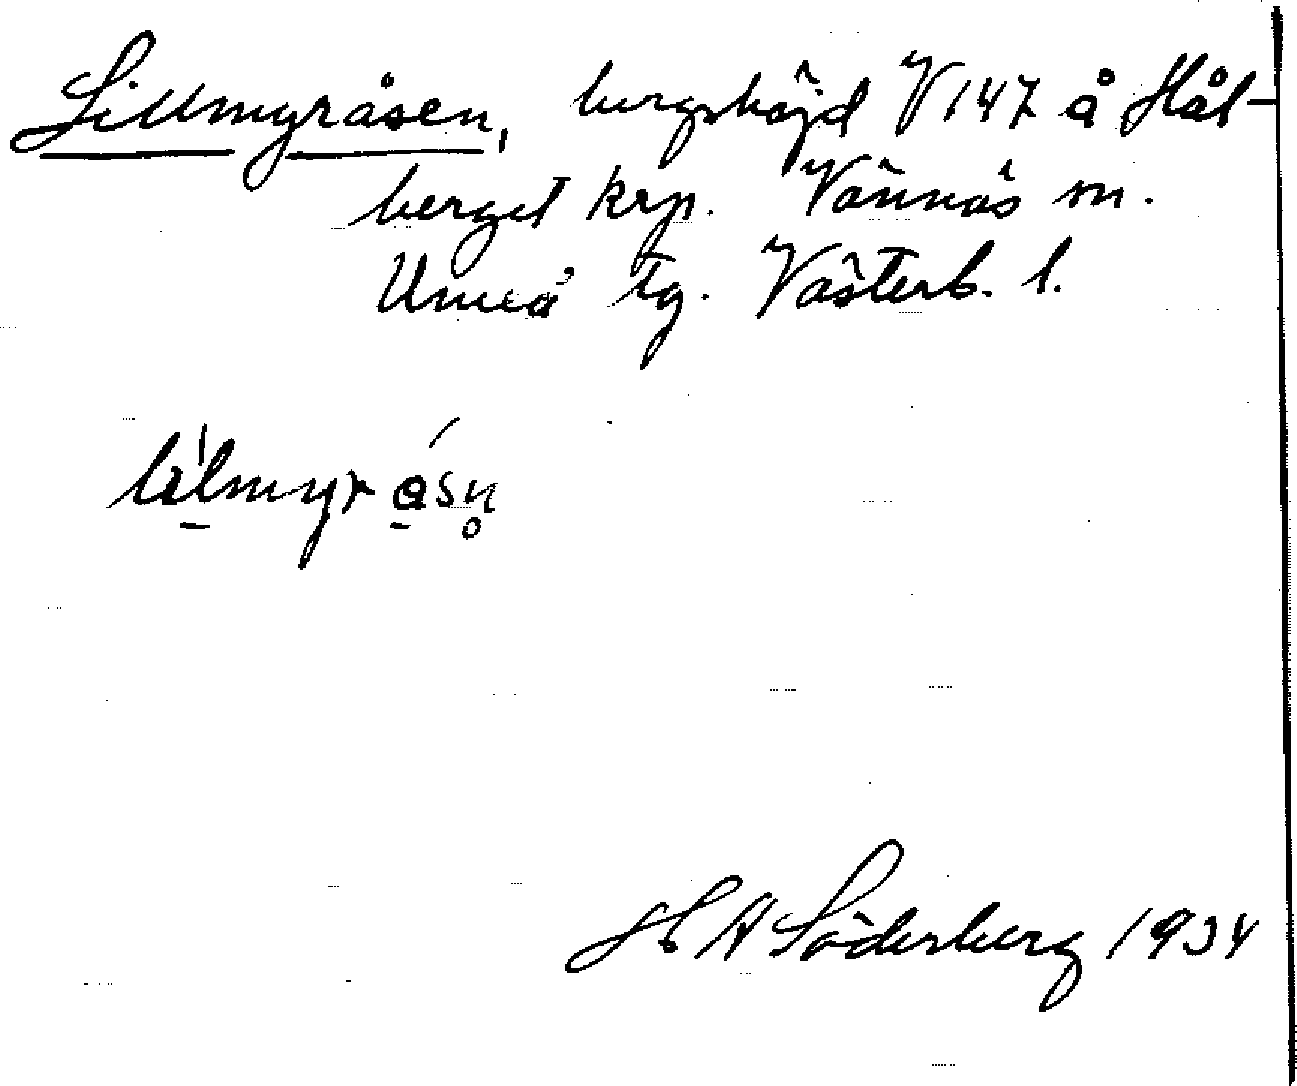 Lillmyråsen, bergshöjd V 147 å Hål-
berget krp. Vännäs sn.
Umeå tg. Västerb. l.
lilmyråsn̥
H A Söderberg 1934